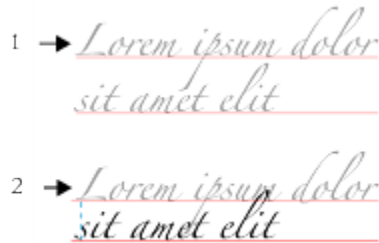 1 Lorem ipsum dolor
sit amet elit
2 Lorem ipsum dolor
sit amet elit